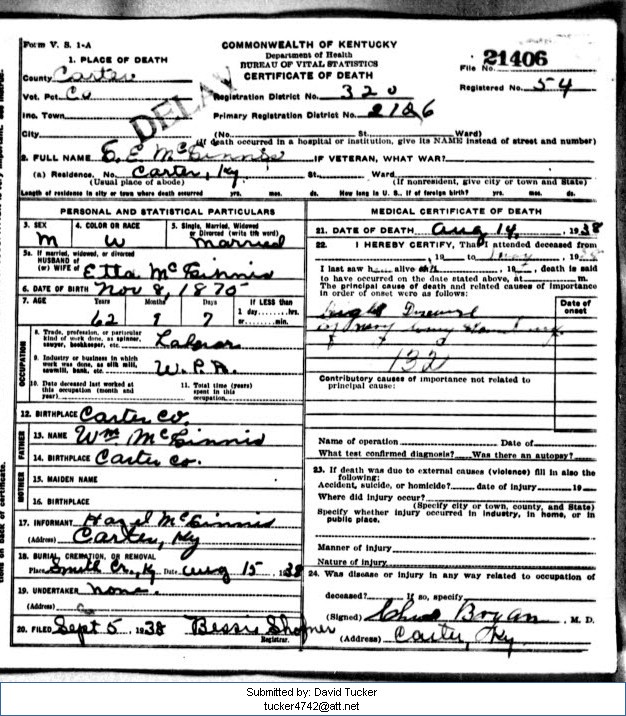 Form V. S. 1-A
COMMONWEALTH OF KENTUCKY
Department of Health
BUREAU OF VITAL STATISTICS
CERTIFICATE OF DEATH
File No. 21406
Registered No. 54
DELAY
1. PLACE OF DEATH
County Carter
Vot. Pct. Co
Registration District No. 320
Inc. Town
Primary Registration District No. 2126
City (No. St. Ward)
(If death occurred in a hospital or institution, give its NAME instead of street and number)
2. FULL NAME S. E. McGinnis IF VETERAN, WHAT WAR?
(a) Residence. No. Carter, Ky St. Ward.
(Usual place of abode) (If nonresident, give city or town and State)
Length of residence in city or town where death occurred yrs. mos. ds. How long in U. S., if of foreign birth? yrs. mos. ds.
PERSONAL AND STATISTICAL PARTICULARS
3. SEX M
4. COLOR OR RACE W
5. Single, Married, Widowed or Divorced (write the word) Married
5a. If married, widowed, or divorced
HUSBAND of
(or) WIFE of Etta McGinnis
6. DATE OF BIRTH Nov 8, 1875
7. AGE Years Months Days IF LESS than
62 9 7 1 day, hrs.
or min.
OCCUPATION
8. Trade, profession, or particular
kind of work done, as spinner,
sawyer, bookkeeper, etc. Labor
9. Industry or business in which
work was done, as silk mill,
sawmill, bank, etc. W.P.A.
10. Date deceased last worked at
this occupation (month and
year)
11. Total time (years)
spent in this
occupation
12. BIRTHPLACE Carter Co.
FATHER
13. NAME Wm McGinnis
14. BIRTHPLACE Carter co.
MOTHER
15. MAIDEN NAME
16. BIRTHPLACE
17. INFORMANT Hazel McGinnis
(Address) Carter, Ky
18. BURIAL, CREMATION, OR REMOVAL
Place Smith Cr, Ky Date Aug 15, 1938
19. UNDERTAKER none.
(Address)
20. FILED Sept 5, 1938 Bessie
Registrar.
MEDICAL CERTIFICATE OF DEATH
21. DATE OF DEATH Aug 14, 1938
22. I HEREBY CERTIFY, That I attended deceased from
, 19 to , 19
I last saw h alive on , 19 , death is said
to have occurred on the date stated above, at m.
The principal cause of death and related causes of importance
in order of onset were as follows:
Date of
onset
132
Contributory causes of importance not related to
principal cause:
Name of operation Date of
What test confirmed diagnosis? Was there an autopsy?
23. If death was due to external causes (violence) fill in also the
following:
Accident, suicide, or homicide? date of injury 19
Where did injury occur?
(Specify city or town, county, and State)
Specify whether injury occurred in industry, in home, or in
public place.
Manner of injury
Nature of injury
24. Was disease or injury in any way related to occupation of
deceased? If so, specify
(Signed) Bryan M. D.
(Address) Carter, Ky
tions on back of certificate.
Submitted by: David Tucker
tucker4742@att.net